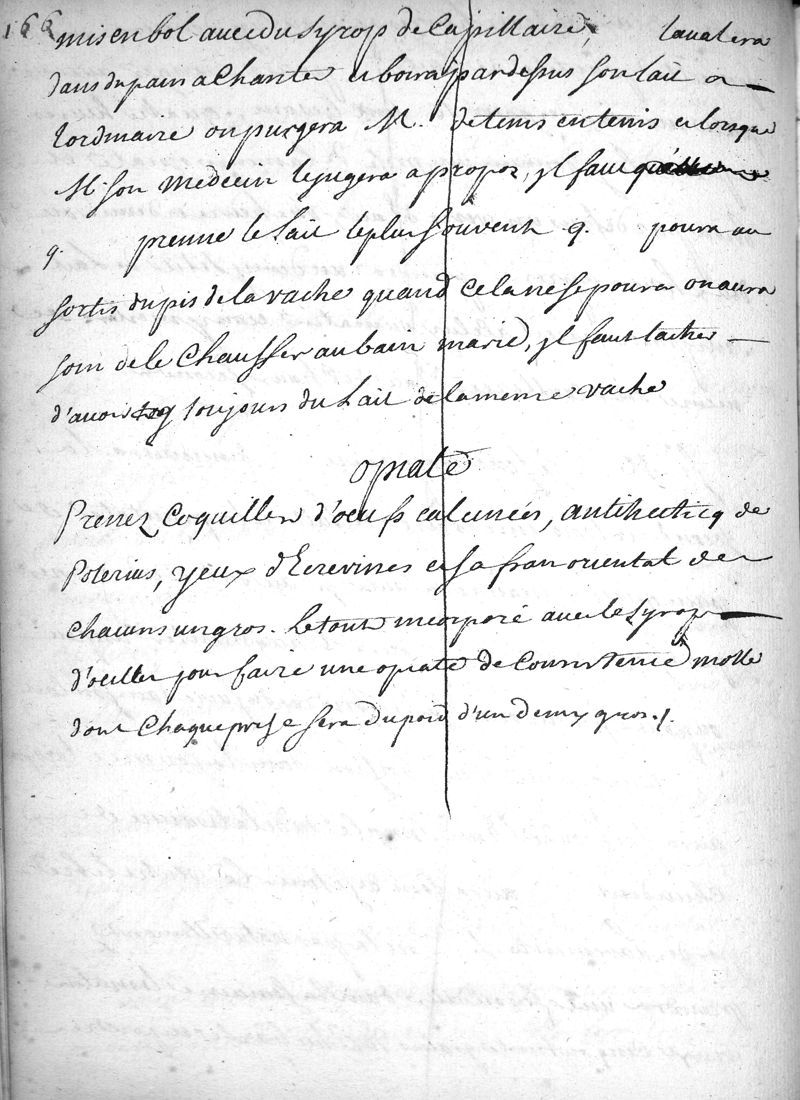 166
mis en bol avec du syrop de Capillaire, lavalera
dans du pain a Chanter et boira par dessus son lait a
lordinaire on purgera M. de tems en tems et lorsque
Mr. son Medecin le jugera a propos, il faut
q. prenne le Lait le plus souvent q. poura au
sortir du pis de la vache quand cela ne se poura on aura
soin de le Chauffer au bain marie, il faut tacher
d'avoir toujours du Lait de la meme vache
opiate
Prenez Coquilles d'oeufs calcinées, antihectiq de
Poterius, yeux d'Ecrevisses et safran oriental de
chacuns un gros. Le tout incorporé avec le syrop
d'oeillet pour faire une opiate de Consistence molle
dont Chaque prise sera du poid d'un demy gros ./.